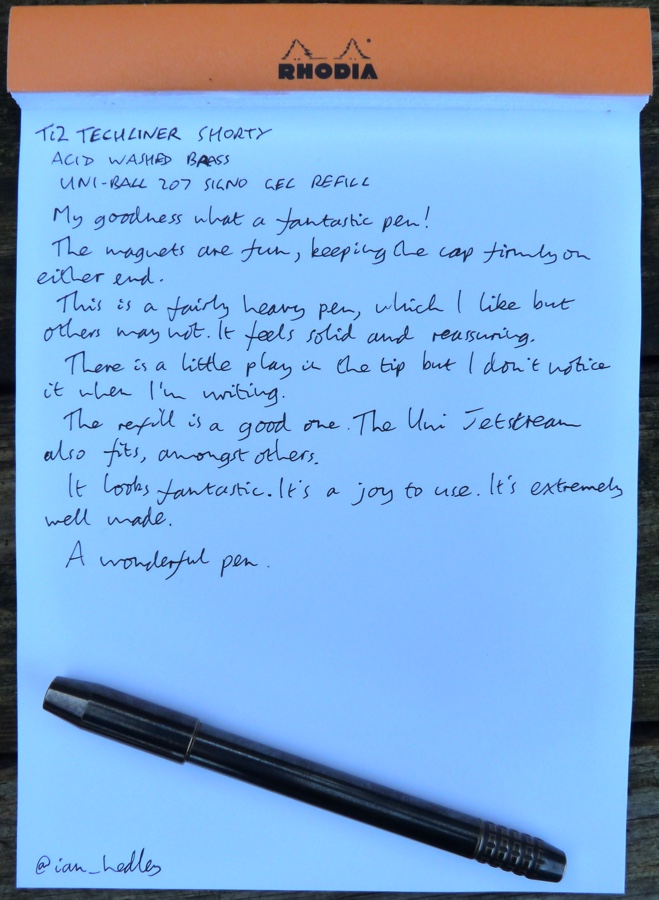 RHODIA
Ti2 TECHLINER SHORTY
ACID WASHED BRASS
UNI-BALL 207 SIGNO GEL REFILL
My goodness what a fantastic pen!
The magnets are fun, keeping the cap firmly on
either end.
This is a fairly heavy pen, which I like but
others may not. It feels solid and reassuring.
There is a little play in the tip but I don't notice
it when I'm writing.
The refill is a good one. The Uni Jetstream
also fits, amongst others.
It looks fantastic. It's a joy to use. It's extremely
well made.
A wonderful pen.
@ian_hedley